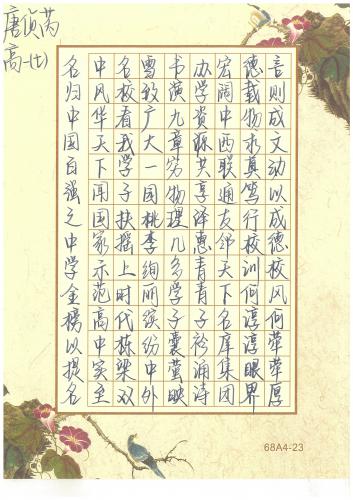 唐侦芮
高一(七)
言则成文动以成德校风何荦荦厚
德载物求真笃行校训何淳淳眼界
宏阔中西联通友邻天下名庠集团
办学资源共享泽惠青青子衿诵诗
书演九章穷物理几多学子囊萤映
雪致广大一国桃李绚丽缤纷中外
名校看我学子扶摇上时代栋梁双
中风华天下闻国家示范高中实至
名归中国百强之中学金榜以提名
68A4-23